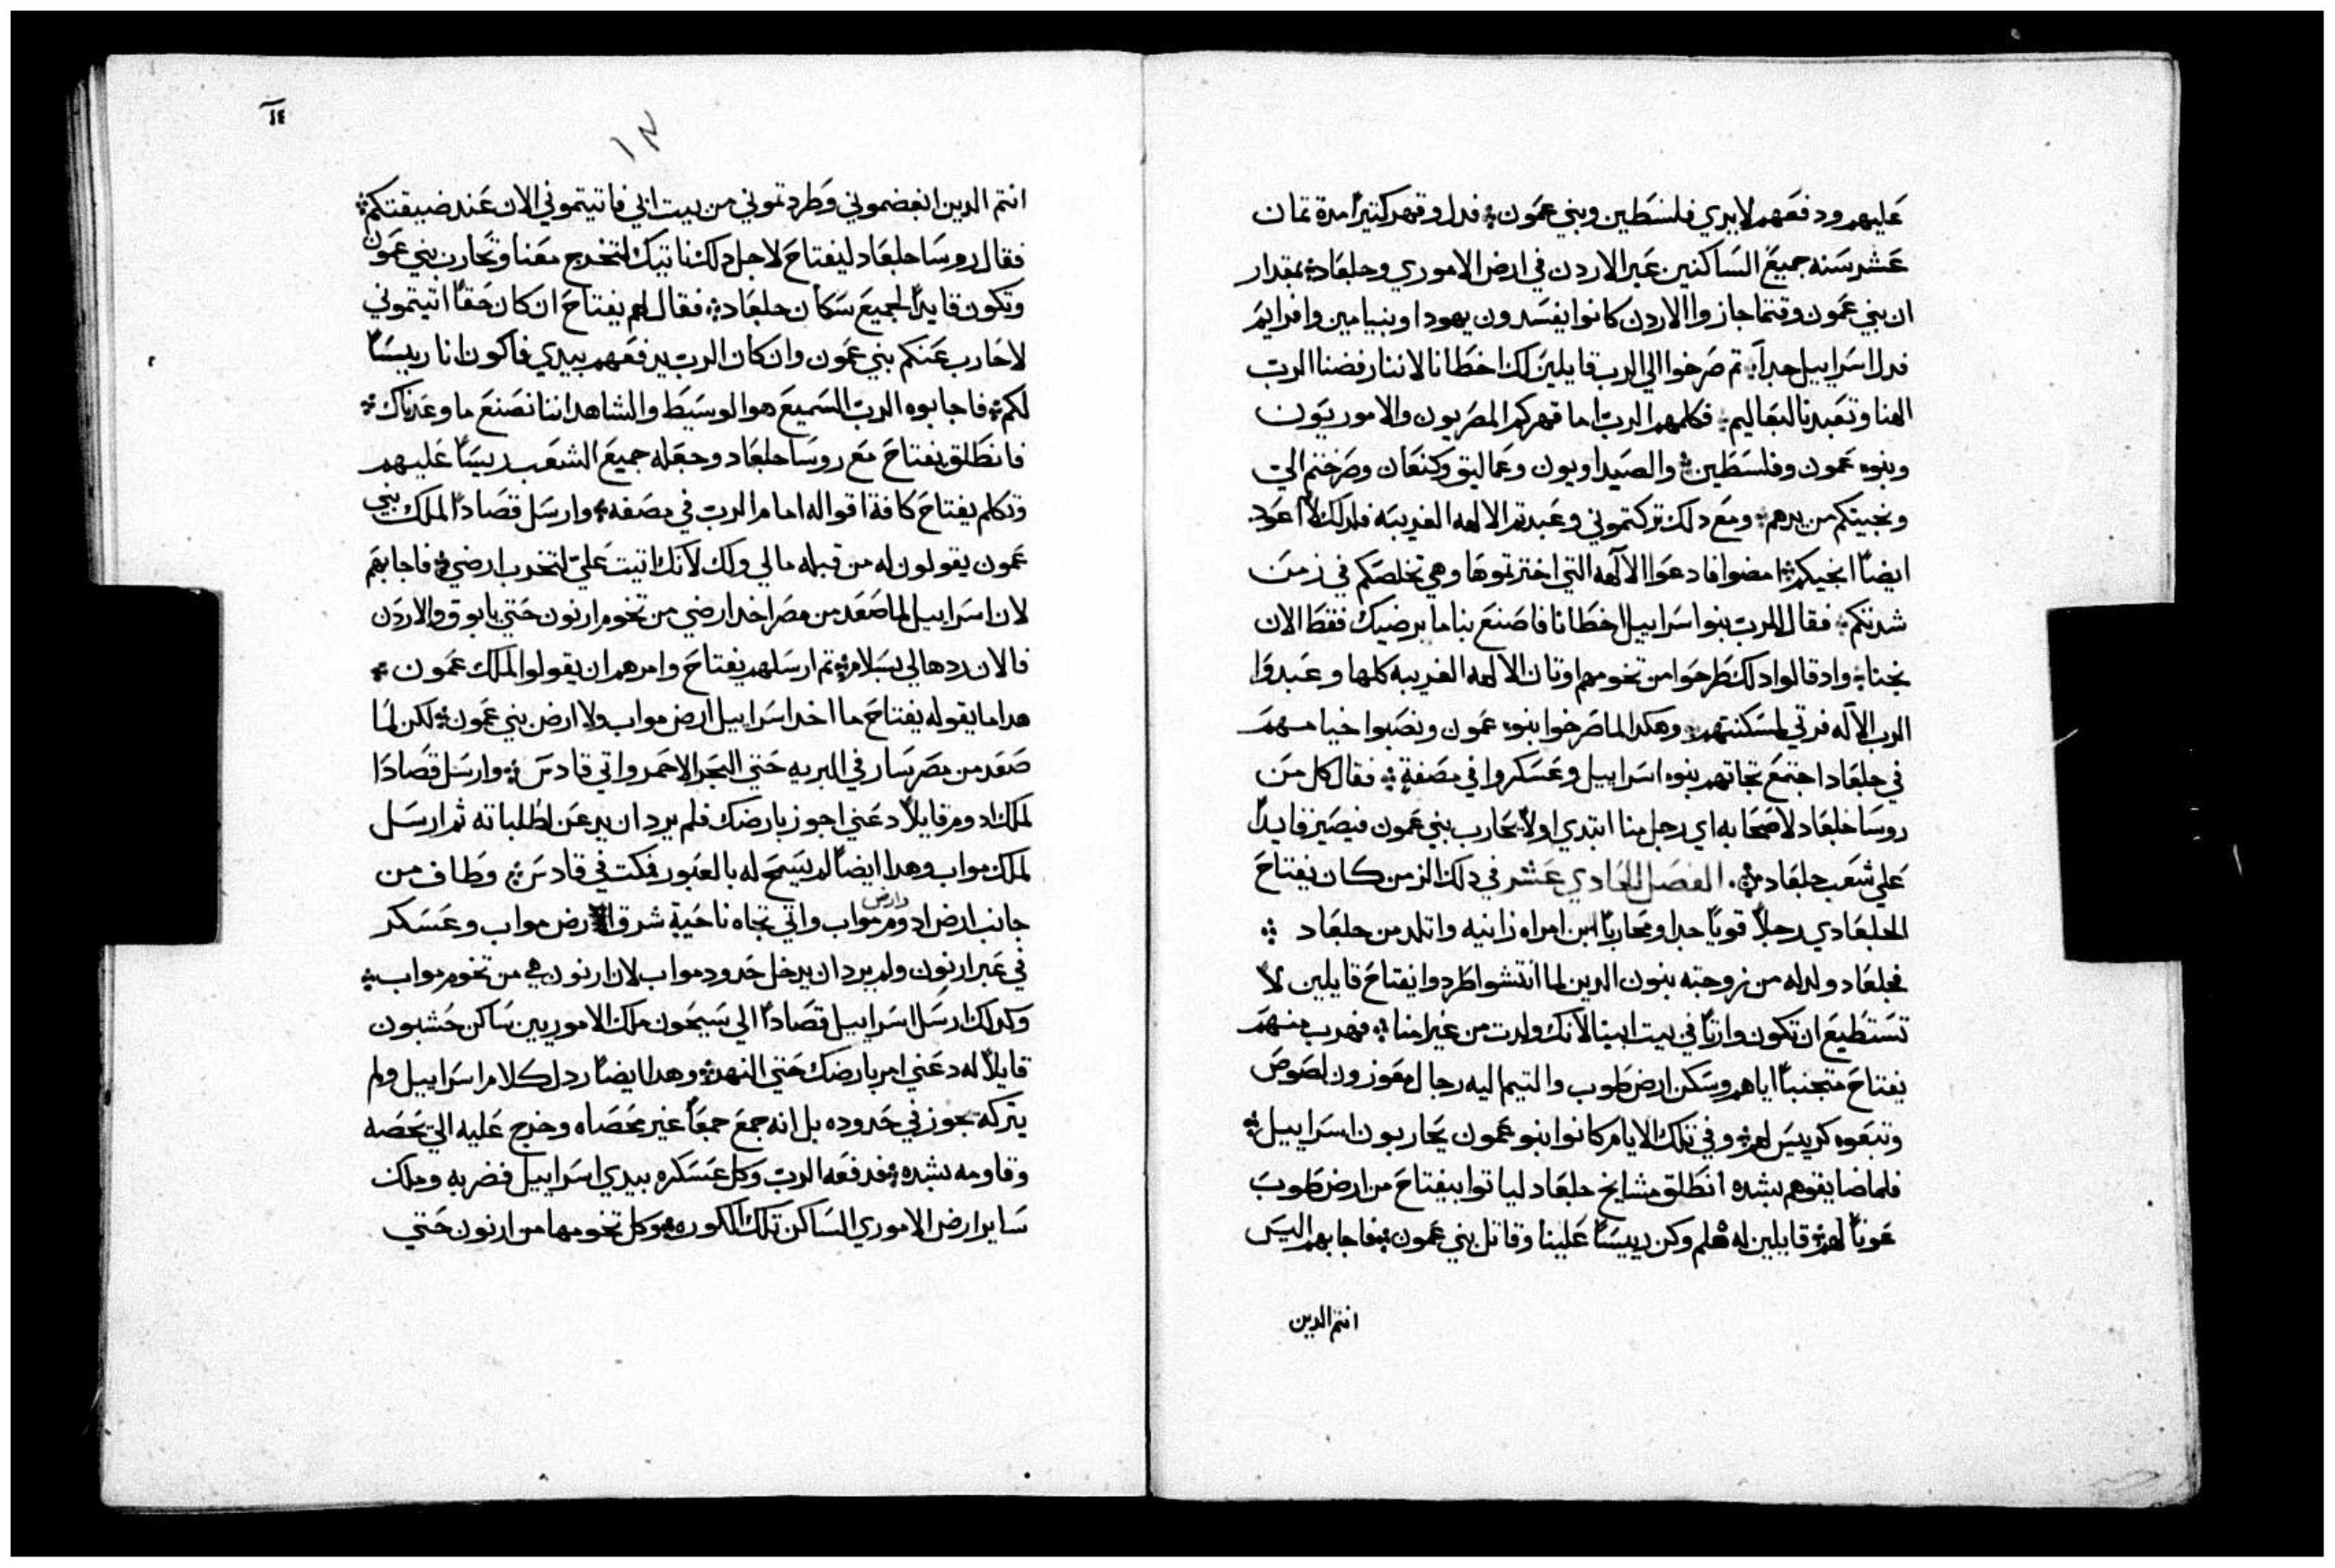 عليهم ودفعهم لايدي فلسطين وبني عمون فدلوا وقهر كتيراً مدة تمان
عشر سنه جميع الساكنين عبر الاردن في ارض الاموري وجلعاد بمقدار
ان بني عمون وقتما جازوا الاردن كانوا يفسدون يهودا وبنيامين وافرايم
فدل اسراييل جداً تم صرخوا الي الرب قايلين لك اخطانا لاننا رفضنا الرب
الهنا وتعبدنا لبعاليم فكلمهم الرب اما قهركم المصريون والاموريون
وبنوه عمون وفلسطين والصيداويون وعماليق وكنعان وصرختم الي
ونجيتكم من يدهم ومع دلك تركتموني وعبدتم الالهه الغريبه فلدلك لا اعود
ايضاً انجيكم امضوا فادعوا الالهه التي اخترتموها وهي تخلصكم في زمن
شدتكم فقال للرب بنوا اسراييل اخطانا فاصنع بنا ما يرضيك فقط الان
نجنا واد قالوا دلك طرحوا من تخومهم اوتان الالهه الغريبه كلها وعبدوا
الرب الاله فرتي لمسكنتهم وهكدا لما صرخوا بنوه عمون ونصبوا خيامهم
في جلعاد اجتمع تجاتهم بنوه اسراييل وعسكروا في مصفة فقال كل من
روسا جلعاد لاصحابه اي رجل منا ابتدي اولاً يحارب بني عمون فيصير قايداً
علي شعب جلعاد الفصل الحادي عشر في دلك الزمن كان يفتاح
الجلعادي رجلاً قوياً جدا ومحارباً ابن امراه زانيه واتلد من جلعاد
فجلعاد ولد له من زوجته بنون الدين لما انتشوا طردوا يفتاح قايلين لا
تستطيع ان تكون وارتاً في بيت ابينا لانك ولدت من غير امنا فهرب منهم
يفتاح متجنباً اياهم وسكن ارض طوب والتيم اليه رجال معوزون لصوص
وتبعوه كرييس لهم وفي تلك الايام كانوا بنو عمون يحاربون اسراييل
فلما ضايقوهم بشده انطلق مشايخ جلعاد لياتوا بيفتاح من ارض طوب
عوناً لهم قايلين له هلم وكن رييساً علينا وقاتل بني عمون فاجابهم اليس
انتم الدين
١٤
١٣
انتم الدين ابغضموني وطردتموني من بيت ابي فاتيتموني الان عند ضيقتكم
فقال روسا جلعاد ليفتاح لاجل دلك ناتيك لتخرج معنا وتحارب بني عمون
وتكون قايداً لجميع سكان جلعاد فقال لهم يفتاح ان كان حقاً اتيتموني
لاحارب عنكم بني عمون وان كان الرب يدفعهم بيدي فاكون انا رييساً
لكم فاجابوه الرب السميع هو الوسيط والشاهد اننا نصنع ما وعدناك
فانطلق يفتاح مع روسا جلعاد وجعله جميع الشعب رييساً عليهم
وتكلم يفتاح كافة اقواله امام الرب في مصفه وارسل قصاداً لملك بني
عمون يقولون له من قبله مالي ولك لانك اتيت علي لتخرب ارضي فاجابهم
لان اسراييل لما صعد من مصر اخد ارضي من تخوم ارنون حتي يابوق والاردن
فالان ردها لي بسلام تم ارسلهم يفتاح وامرهم ان يقولوا لملك عمون
هدا ما يقوله يفتاح ما اخد اسراييل ارض مواب ولا ارض بني عمون لكن لما
صعد من مصر سار في البريه حتي البحر الاحمر واتي قادس وارسل قصادا
لملك ادوم قايلاً دعني اجوز بارضك فلم يرد ان يدعن لطلباته ثم ارسل
لملك مواب وهدا ايضاً لم يسمح له بالعبور فمكت في قادس وطاف من
جانب ارض ادوم وارض مواب واتي تجاه ناحية شرق ارض مواب وعسكر
في عبر ارنون ولم يرد ان يدخل حدود مواب لان ارنون هي من تخوم مواب
وكدلك ارسل اسراييل قصاداً الي سيحون ملك الاموريين ساكن حشبون
قايلاً له دعني امر بارضك حتي النهر وهدا ايضاً ردل كلام اسراييل ولم
يتركه يجوز في حدوده بل انه جمع جمعاً غير محصاه وخرج عليه الي يحصه
وقاومه بشده فدفعه الرب وكل عسكره بيدي اسراييل فضربه وملك
ساير ارض الاموري الساكن تلك الكوره وكل تخومها من ارنون حتي